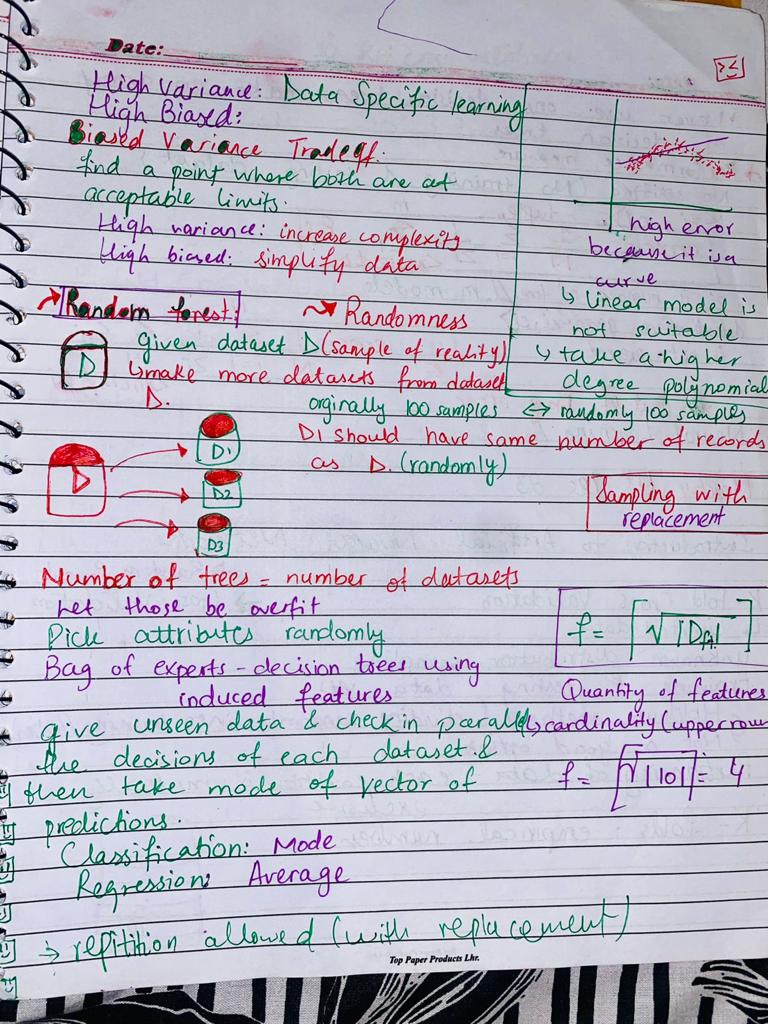 Date:
High Variance: Data Specific learning
High Biased:
Biased Variance Tradeoff:
find a point where both are at
acceptable limits.
High variance: increase complexity
High biased: simplify data
high error
because it is a
curve
↳ linear model is
not suitable
↳ take a higher
degree polynomial
→ Random forest: ⇝ Randomness
D given dataset D (sample of reality)
↳ make more datasets from dataset
D.
orginally 100 samples ↔ randomly 100 samples
D1 should have same number of records
as D. (randomly)
D
D1
D2
D3
Sampling with
replacement
Number of trees = number of datasets
Let those be overfit
Pick attributes randomly
Bag of experts - decision trees using
induced features
f = ⌈√|DA|⌉
Quantity of features
↳ cardinality (upper row
f = ⌈√|10|⌉ = 4
give unseen data & check in parallel
the decisions of each dataset &
then take mode of vector of
predictions.
Classification: Mode
Regression: Average
→ repitition allowed (with replacement)
Top Paper Products Lhr.